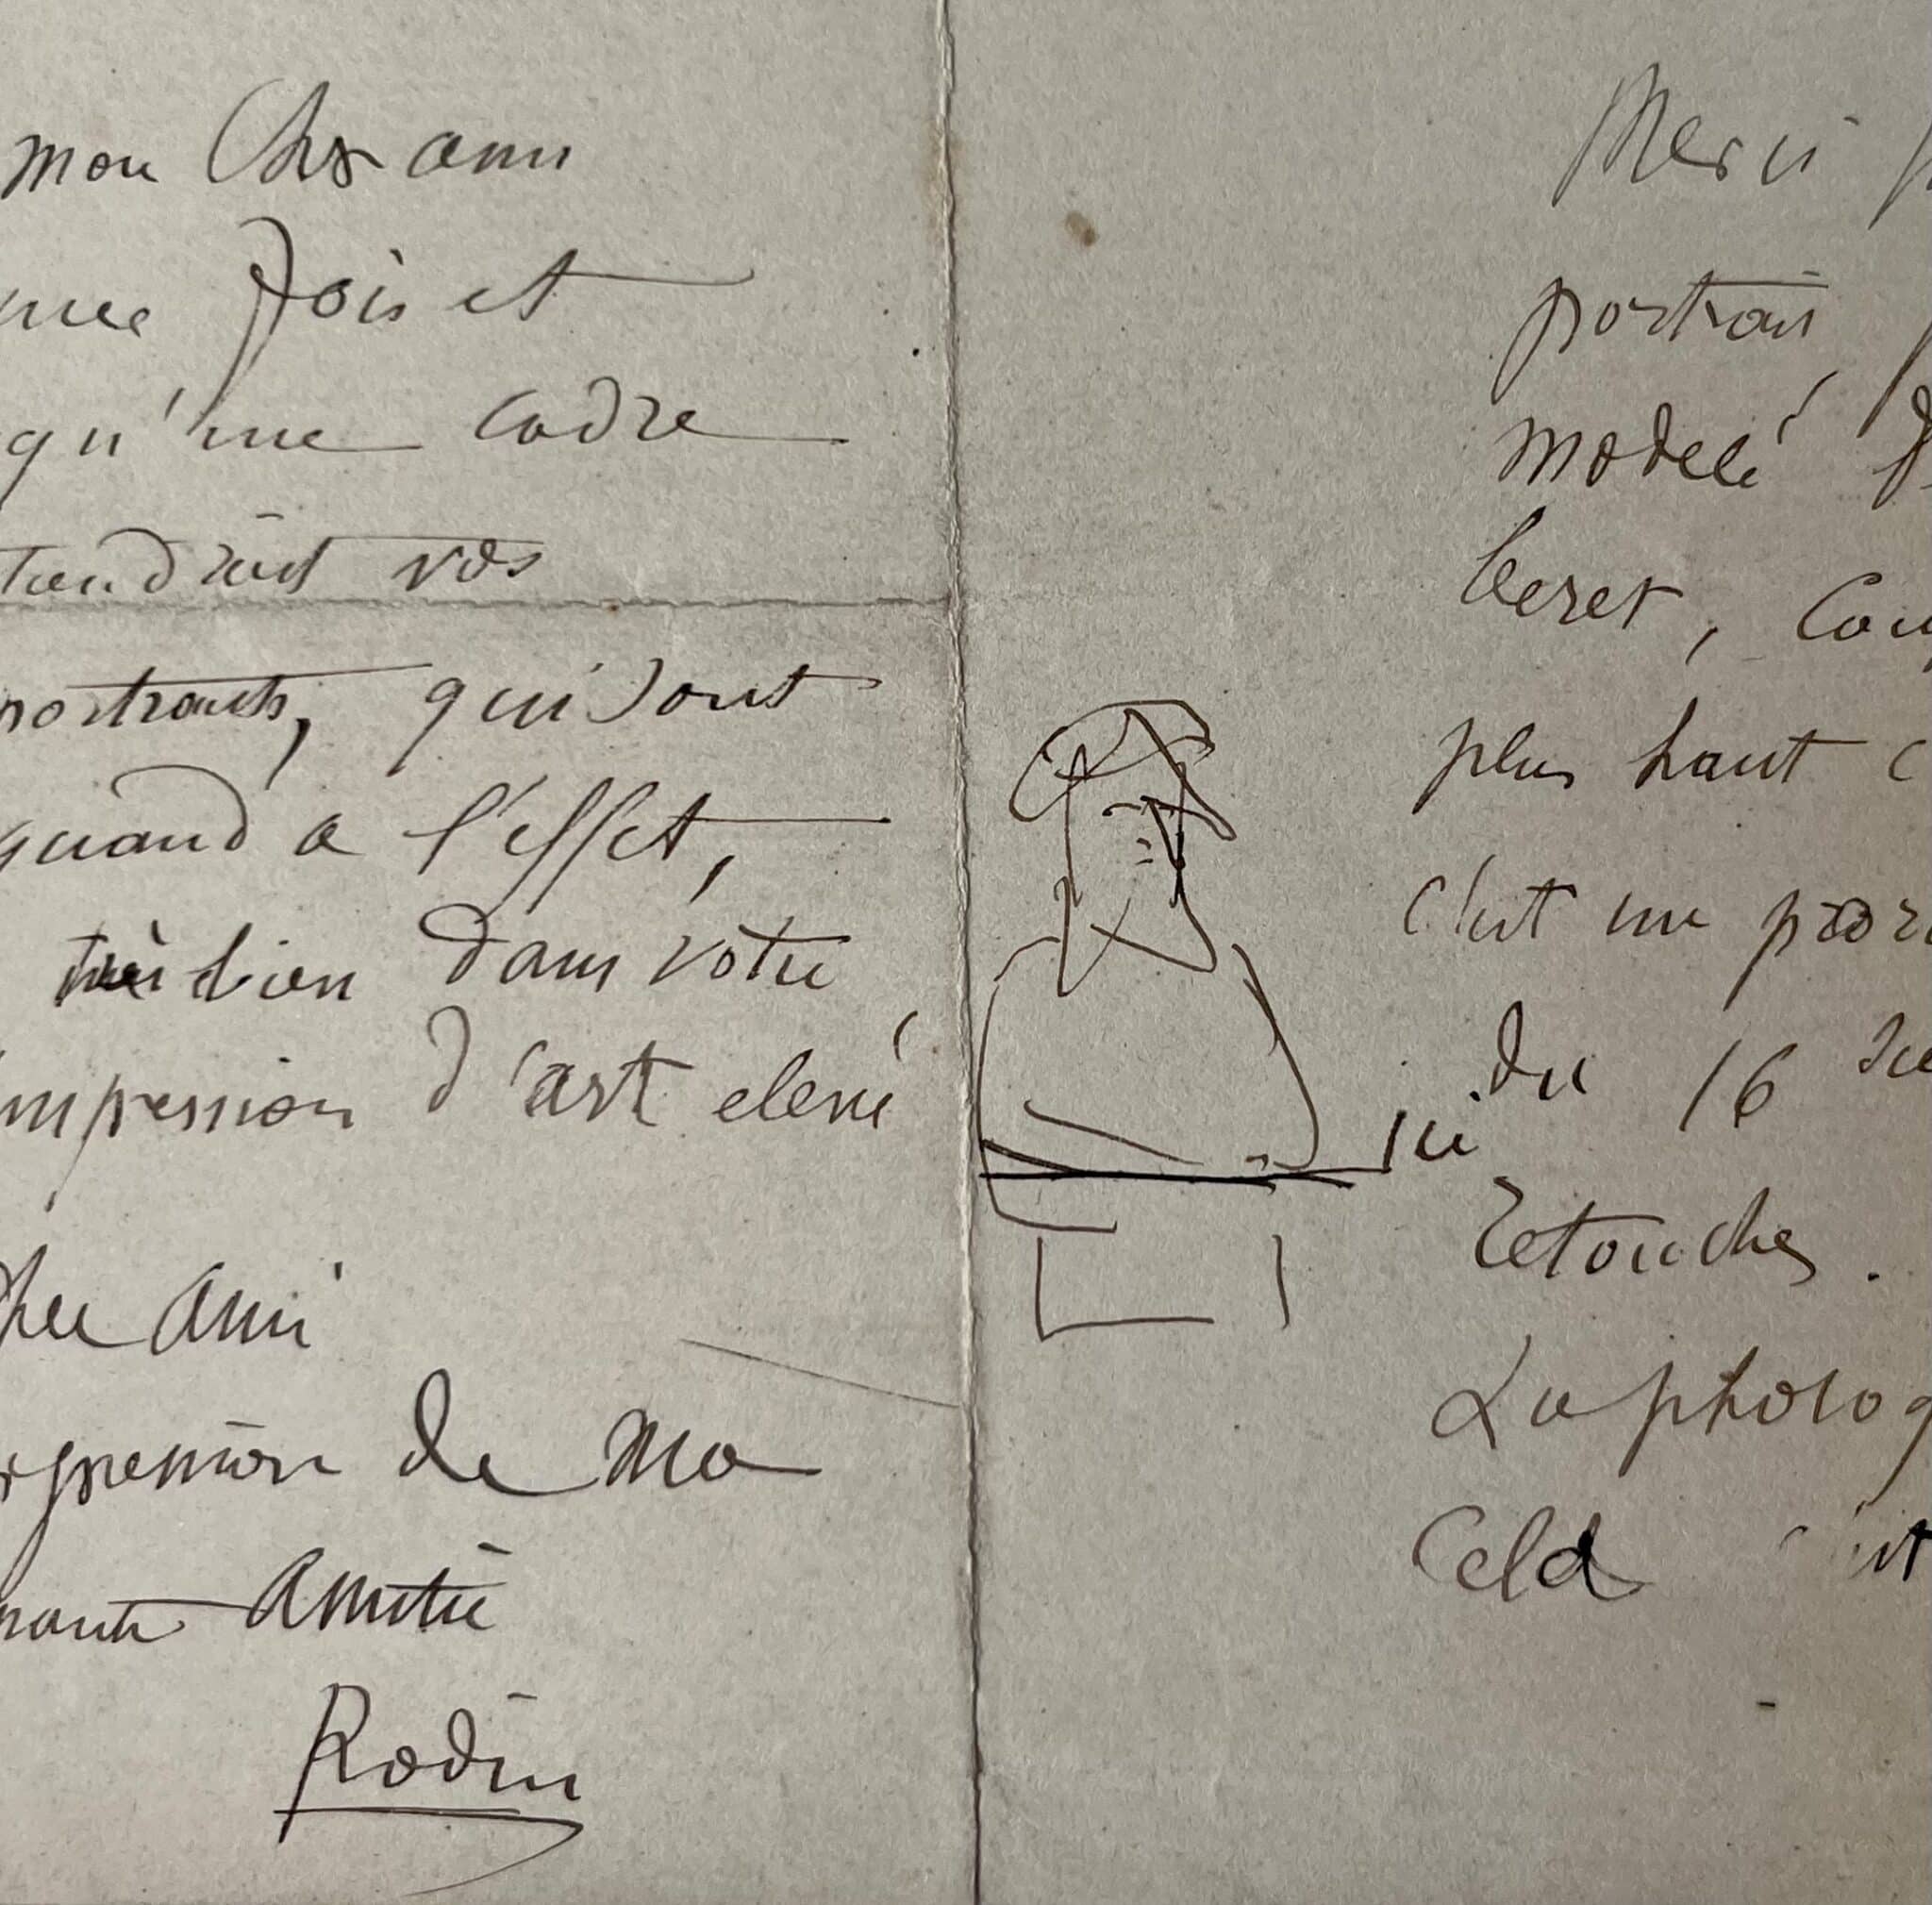 mon Cher ami
une fois et
qu'une cadre
tiendrait vos
portraits, qui sont
quand a l'effet,
très bien dans votre
impression d'art elevé
cher ami
expression de ma
amitié
Rodin
Merci
portrait,
modelé
beret,
plus haut
c'est un
du 16
ici
retouches.
La photog
Cela est